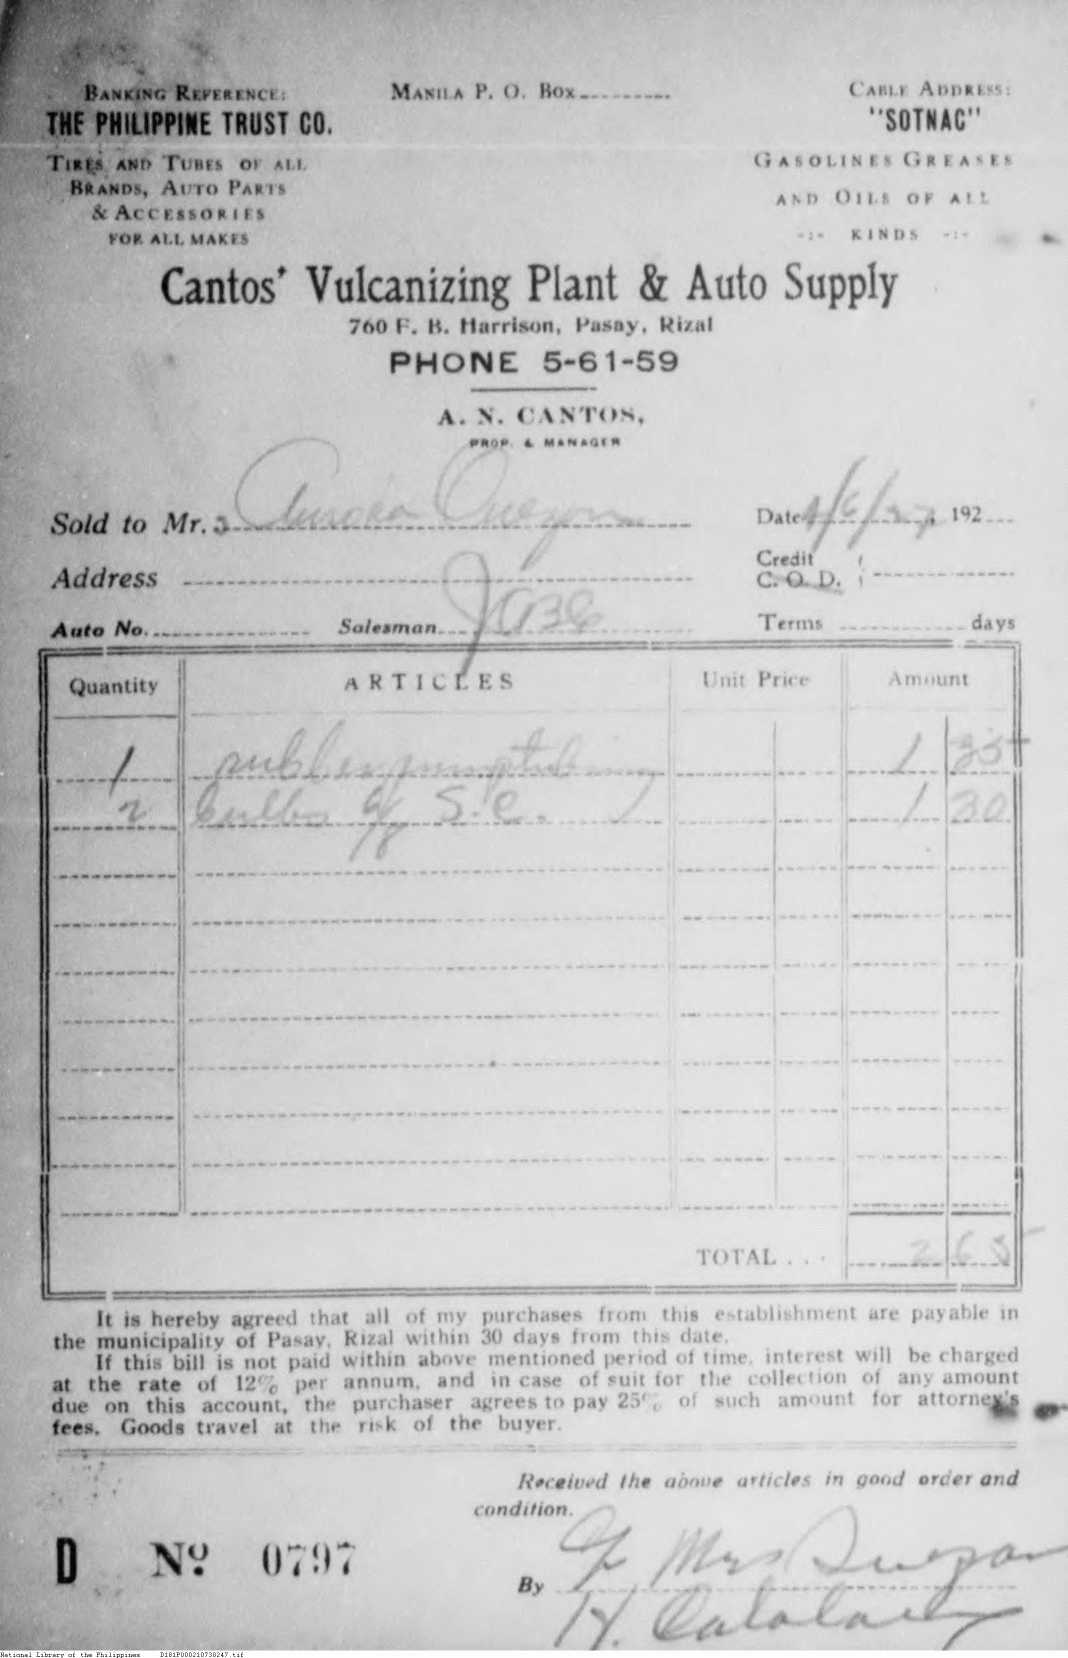 BANKING REFERENCE:
THE PHILIPPINE TRUST CO.
TIRES AND TUBES OF ALL
BRANDS, AUTO PARTS
& ACCESSORIES
FOR ALL MAKES
MANILA P. O. BOX
CABLE ADDRESS:
"SOTNAC"
GASOLINES GREASES
AND OILS OF ALL
-:- KINDS -:-
Cantos' Vulcanizing Plant & Auto Supply
760 F. B. Harrison, Pasay, Rizal
PHONE 5-61-59
A. N. CANTOS,
PROP. & MANAGER
Sold to Mr. s Aurora Quezon
Date /6/37, 192
Address
Credit
C. O. D.
Auto No. Salesman
Terms days
Quantity ARTICLES Unit Price Amount
1 rubber pump tubing 1 35
2 bulbs S.C. 1 30
TOTAL . . . 2 65
It is hereby agreed that all of my purchases from this establishment are payable in
the municipality of Pasay, Rizal within 30 days from this date.
If this bill is not paid within above mentioned period of time, interest will be charged
at the rate of 12% per annum, and in case of suit for the collection of any amount
due on this account, the purchaser agrees to pay 25% of such amount for attorney's
fees. Goods travel at the risk of the buyer.
Received the above articles in good order and
condition.
D Nº 0797
By Mrs Quezon
H.
National Library of the Philippines D181P000210738247.tif